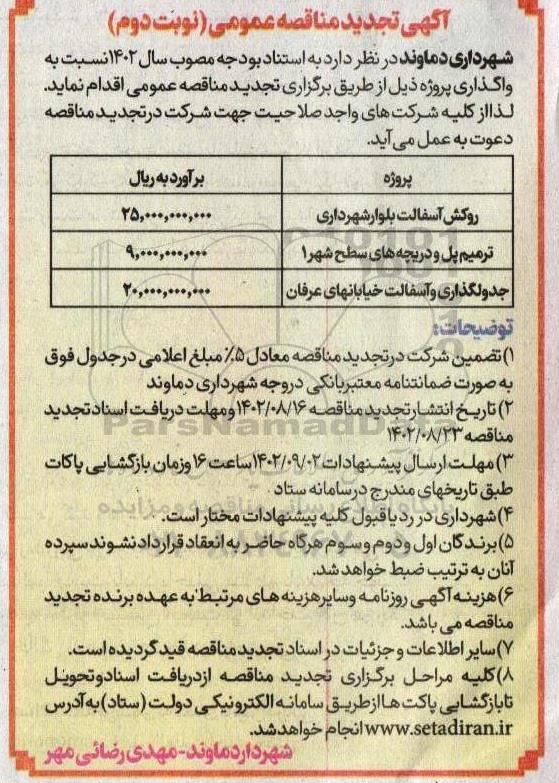 آگهی تجدید مناقصه عمومی (نوبت دوم)
شهرداری دماوند در نظر دارد به استناد بودجه مصوب سال ۱۴۰۲ نسبت به
واگذاری پروژه ذیل از طریق برگزاری تجدید مناقصه عمومی اقدام نماید.
لذا از کلیه شرکت های واجد صلاحیت جهت شرکت در تجدید مناقصه
دعوت به عمل می آید.
پروژه برآورد به ریال
روکش آسفالت بلوار شهرداری ۲۵,۰۰۰,۰۰۰,۰۰۰
ترمیم پل و دریچه های سطح شهر ۱ ۹,۰۰۰,۰۰۰,۰۰۰
جدولگذاری و آسفالت خیابانهای عرفان ۲۰,۰۰۰,۰۰۰,۰۰۰
توضیحات:
۱) تضمین شرکت در تجدید مناقصه معادل ۵٪ مبلغ اعلامی در جدول فوق
به صورت ضمانتنامه معتبر بانکی در وجه شهرداری دماوند
۲) تاریخ انتشار تجدید مناقصه ۱۴۰۲/۰۸/۱۶ و مهلت دریافت اسناد تجدید
مناقصه ۱۴۰۲/۰۸/۲۳
۳) مهلت ارسال پیشنهادات ۱۴۰۲/۰۹/۰۲ ساعت ۱۶ و زمان بازگشایی پاکات
طبق تاریخهای مندرج در سامانه ستاد
۴) شهرداری در رد یا قبول کلیه پیشنهادات مختار است.
۵) برندگان اول و دوم و سوم هرگاه حاضر به انعقاد قرارداد نشوند سپرده
آنان به ترتیب ضبط خواهد شد.
۶) هزینه آگهی روزنامه و سایر هزینه های مرتبط به عهده برنده تجدید
مناقصه می باشد.
۷) سایر اطلاعات و جزئیات در اسناد تجدید مناقصه قید گردیده است.
۸) کلیه مراحل برگزاری تجدید مناقصه از دریافت اسناد و تحویل
تا بازگشایی پاکت ها از طریق سامانه الکترونیکی دولت (ستاد) به آدرس
www.setadiran.ir انجام خواهد شد.
شهردار دماوند - مهدی رضائی مهر
ParsNamadData